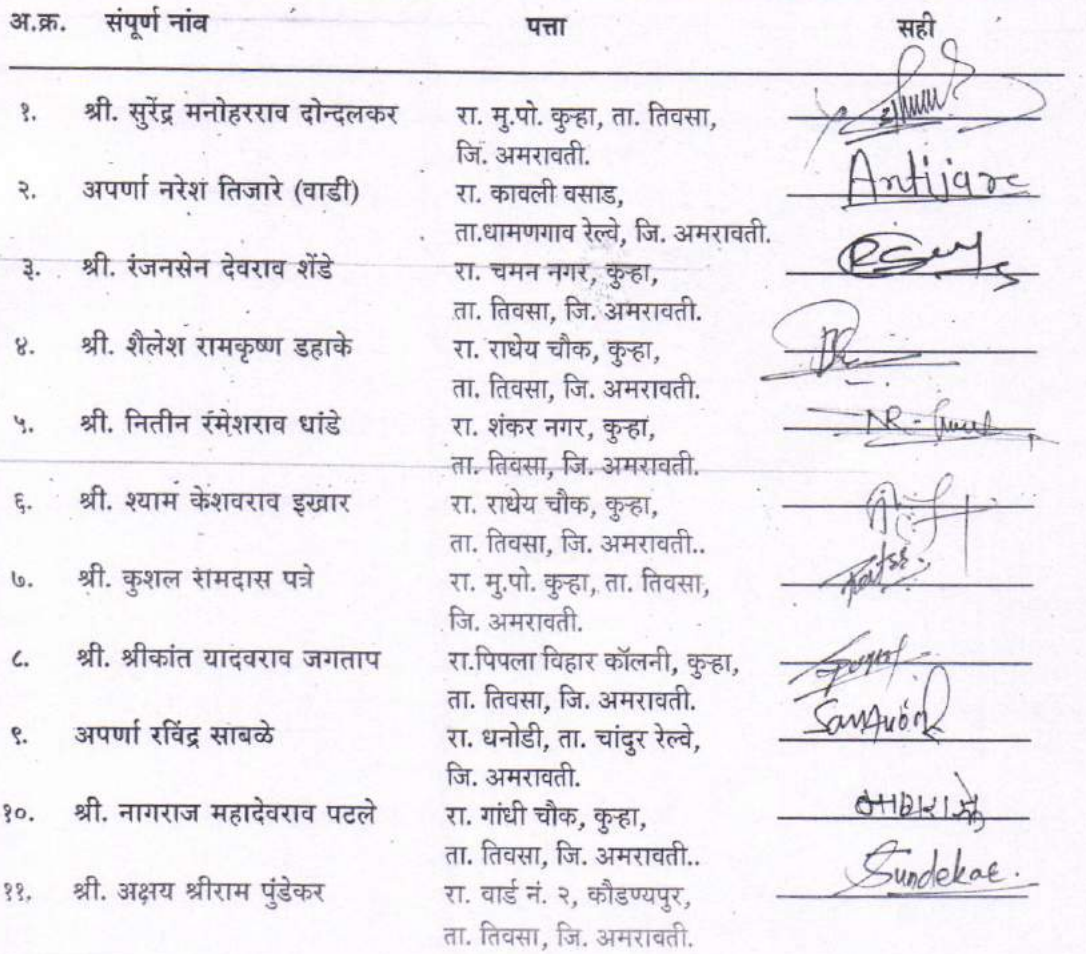 अ.क्र. संपूर्ण नांव पत्ता सही
१. श्री. सुरेंद्र मनोहरराव दोन्दलकर रा. मु.पो. कुऱ्हा, ता. तिवसा,
जि. अमरावती.
२. अपर्णा नरेश तिजारे (वाडी) रा. कावली वसाड, Antijare
ता.धामणगाव रेल्वे, जि. अमरावती.
३. श्री. रंजनसेन देवराव शेंडे रा. चमन नगर, कुऱ्हा,
ता. तिवसा, जि. अमरावती.
४. श्री. शैलेश रामकृष्ण डहाके रा. राधेय चौक, कुऱ्हा,
ता. तिवसा, जि. अमरावती.
५. श्री. नितीन रमेशराव धांडे रा. शंकर नगर, कुऱ्हा,
ता. तिवसा, जि. अमरावती.
६. श्री. श्याम केशवराव इखार रा. राधेय चौक, कुऱ्हा,
ता. तिवसा, जि. अमरावती..
७. श्री. कुशल रामदास पत्रे रा. मु.पो. कुऱ्हा, ता. तिवसा,
जि. अमरावती.
८. श्री. श्रीकांत यादवराव जगताप रा.पिपला विहार कॉलनी, कुऱ्हा,
ता. तिवसा, जि. अमरावती.
९. अपर्णा रविंद्र साबळे रा. धनोडी, ता. चांदुर रेल्वे,
जि. अमरावती.
१०. श्री. नागराज महादेवराव पटले रा. गांधी चौक, कुऱ्हा,
ता. तिवसा, जि. अमरावती..
११. श्री. अक्षय श्रीराम पुंडेकर रा. वार्ड नं. २, कौडण्यपुर, Sundekar.
ता. तिवसा, जि. अमरावती.